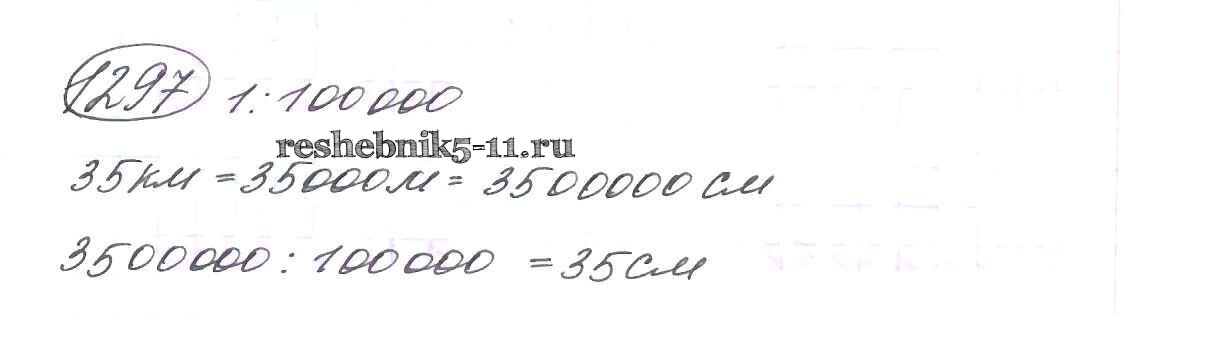 1297 1:100000
reshebnik5-11.ru
35км = 35000м = 3500000 см
3500000 : 100000 = 35см